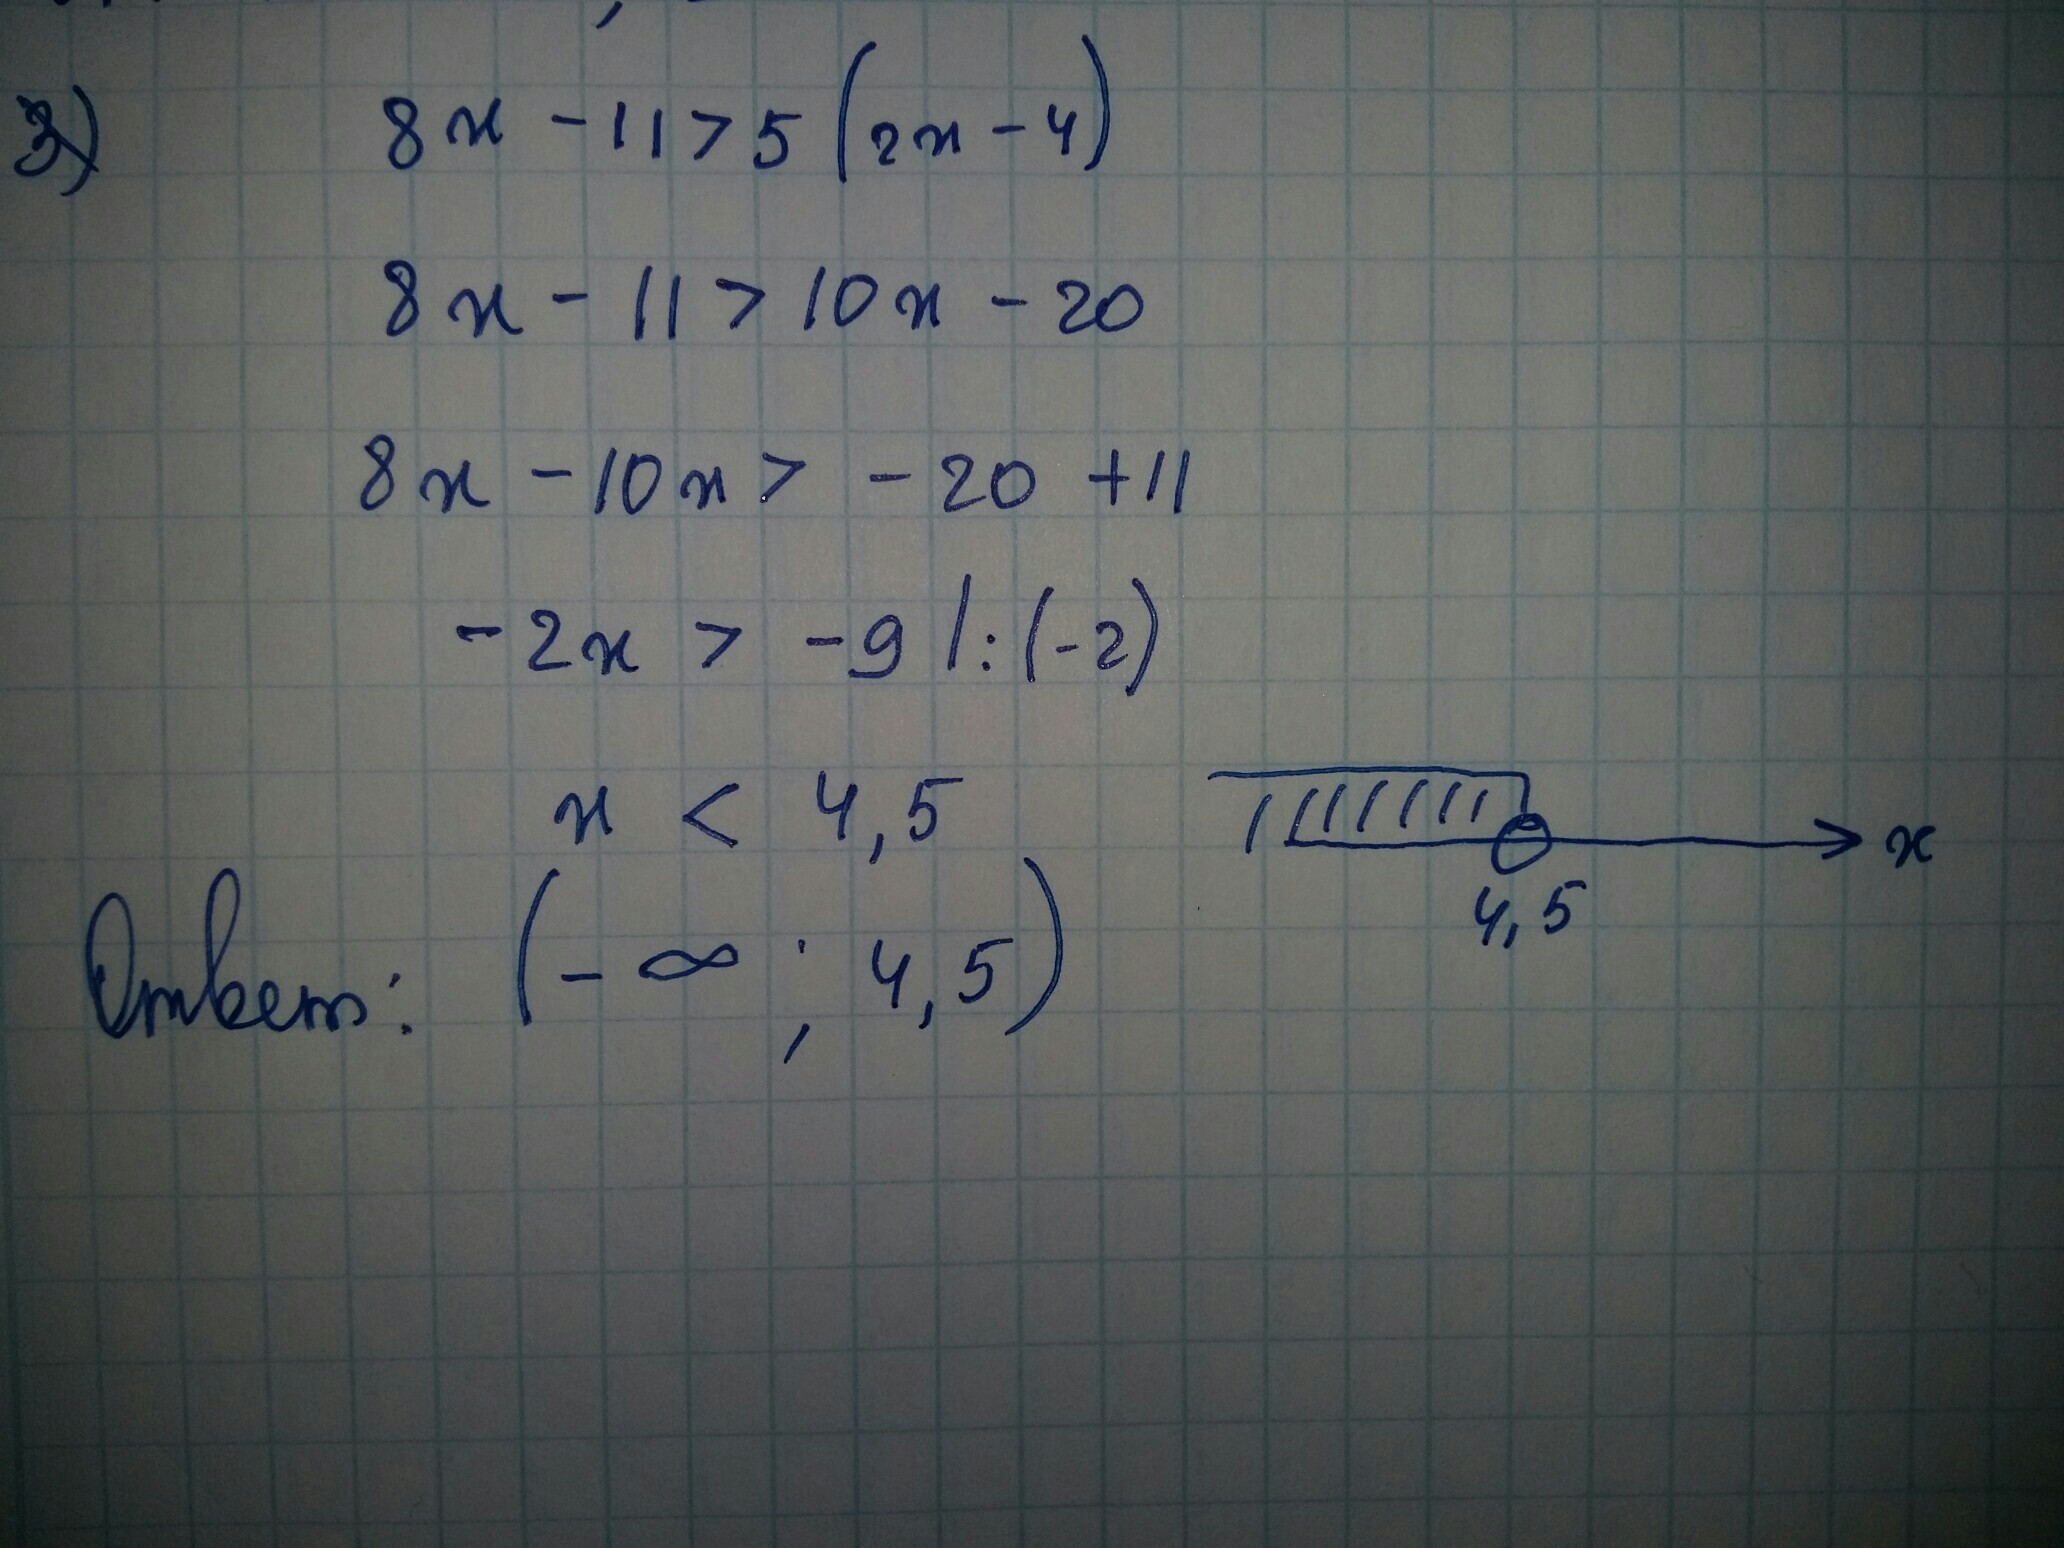 3) 8x - 11 > 5 (2x - 4)
8x - 11 > 10x - 20
8x - 10x > - 20 + 11
- 2x > - 9 |: (-2)
x < 4,5
x
4,5
Ответ: (- ∞ ; 4,5)